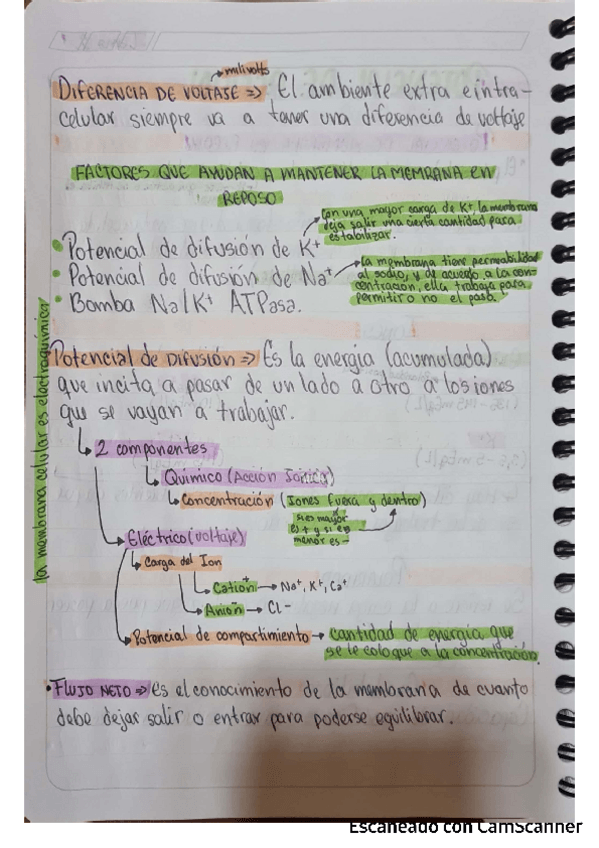 milivolts
DIFERENCIA DE VOLTAJE => El ambiente extra e intra-
celular siempre va a tener una diferencia de voltaje
FACTORES QUE AYUDAN A MANTENER LA MEMRANA EN
REPOSO
Con una mayor carga de K+ la membrana
deja salir una cierta cantidad para
estabilizar.
• Potencial de difusión de K+
• Potencial de difusión de Na+
la membrana tiene permeabilidad
al sodio, y de acuerdo a la con-
centración, ella trabaja para
permitir o no el pasa
• Bomba Na/K+ ATPasa.
la membrana celular es electroquímica
Potencial de Difusión => Es la energia (acumulada)
que incita a pasar de un lado a otro a los iones
que se vayan a trabajar.
2 componentes
Químico (Acción Iónica)
Concentración (Iones fuera y dentro)
si es mayor
es + y si es
menor es -
Eléctrico (voltaje)
Carga del Ion
Catión → Na+, K+, Ca+
Anión → Cl-
Potencial de compartimiento → cantidad de energía que
se le coloque a la concentración.
• FLUJO NETO => es el conocimiento de la membrana de cuanto
debe dejar salir o entrar para poderse equilibrar.
Escaneado con CamScanner